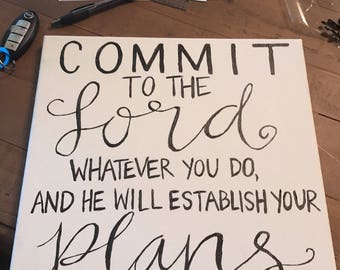 COMMIT
TO THE
Lord
WHATEVER YOU DO,
AND HE WILL ESTABLISH YOUR
Plans